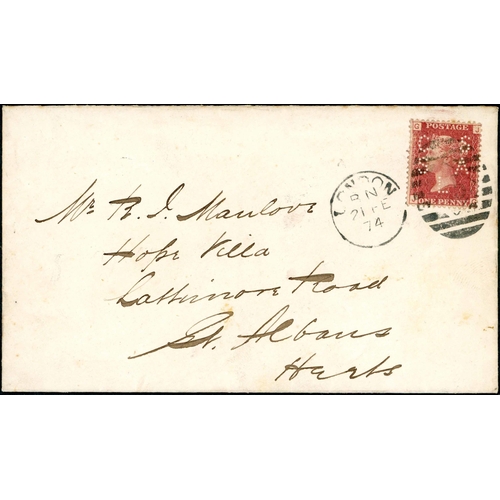 POSTAGE
ONE PENNY
LONDON
B N
21 FE
74
Mr R. J. Manlove
Hope Villa
Lattimore Road
St. Albans
Herts